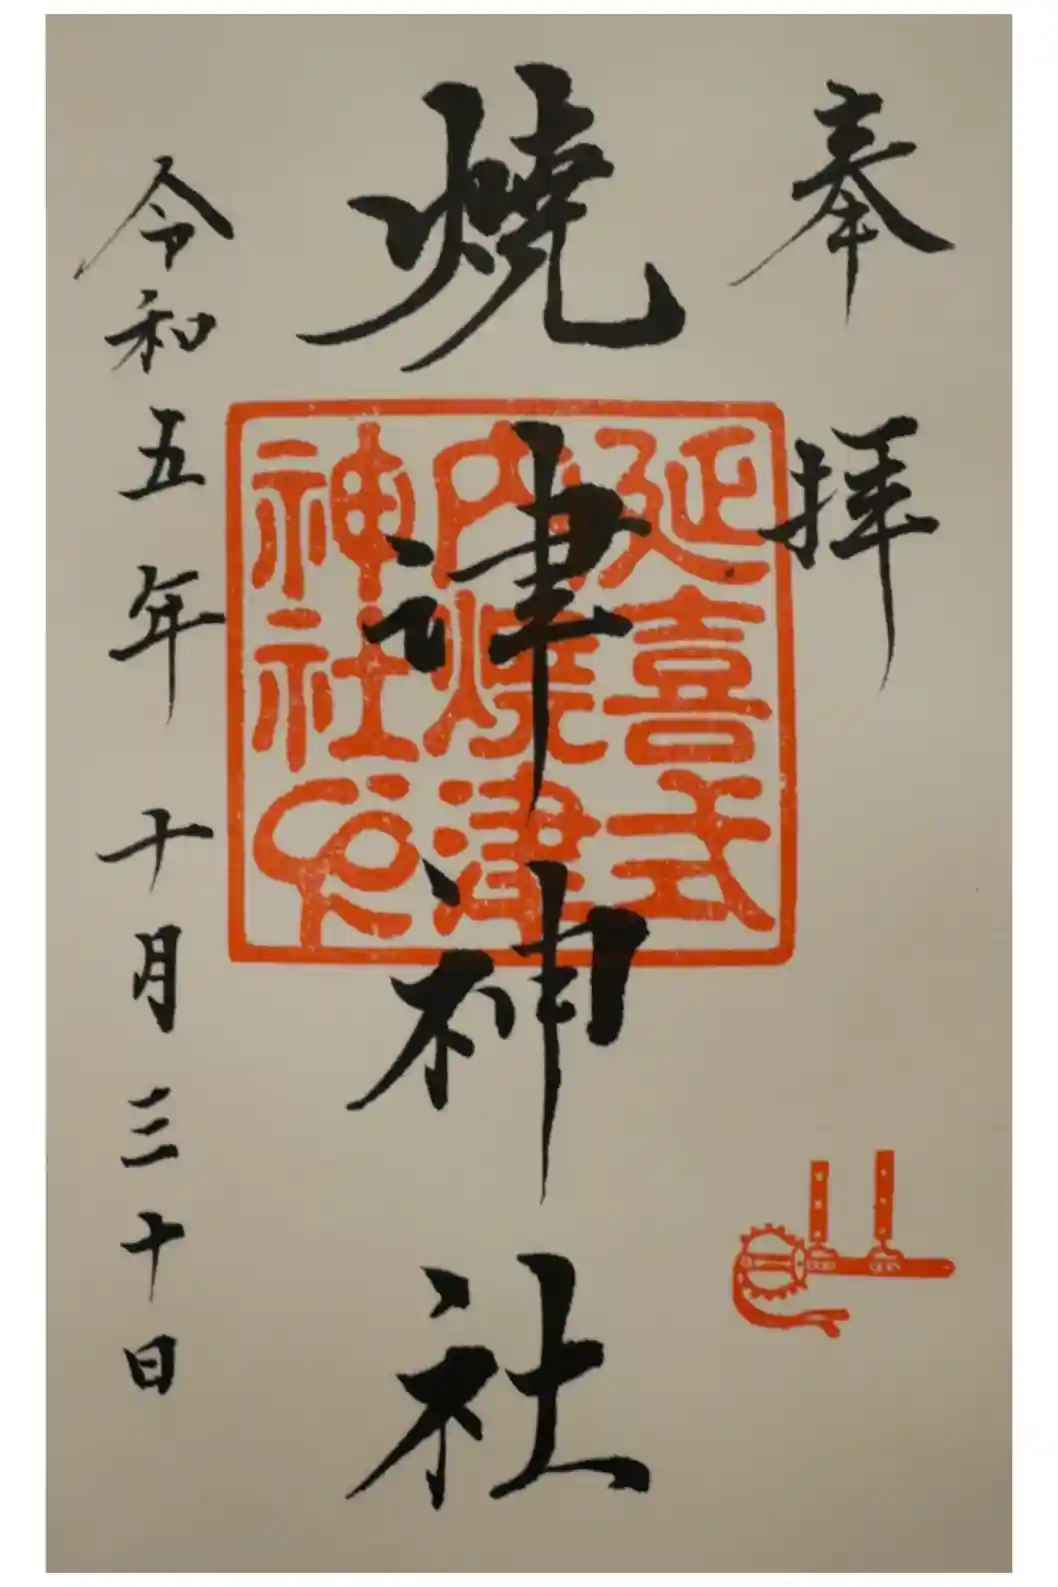 奉拝
燒津神社
延喜式
内燒津
神社印
令和五年十月三十日